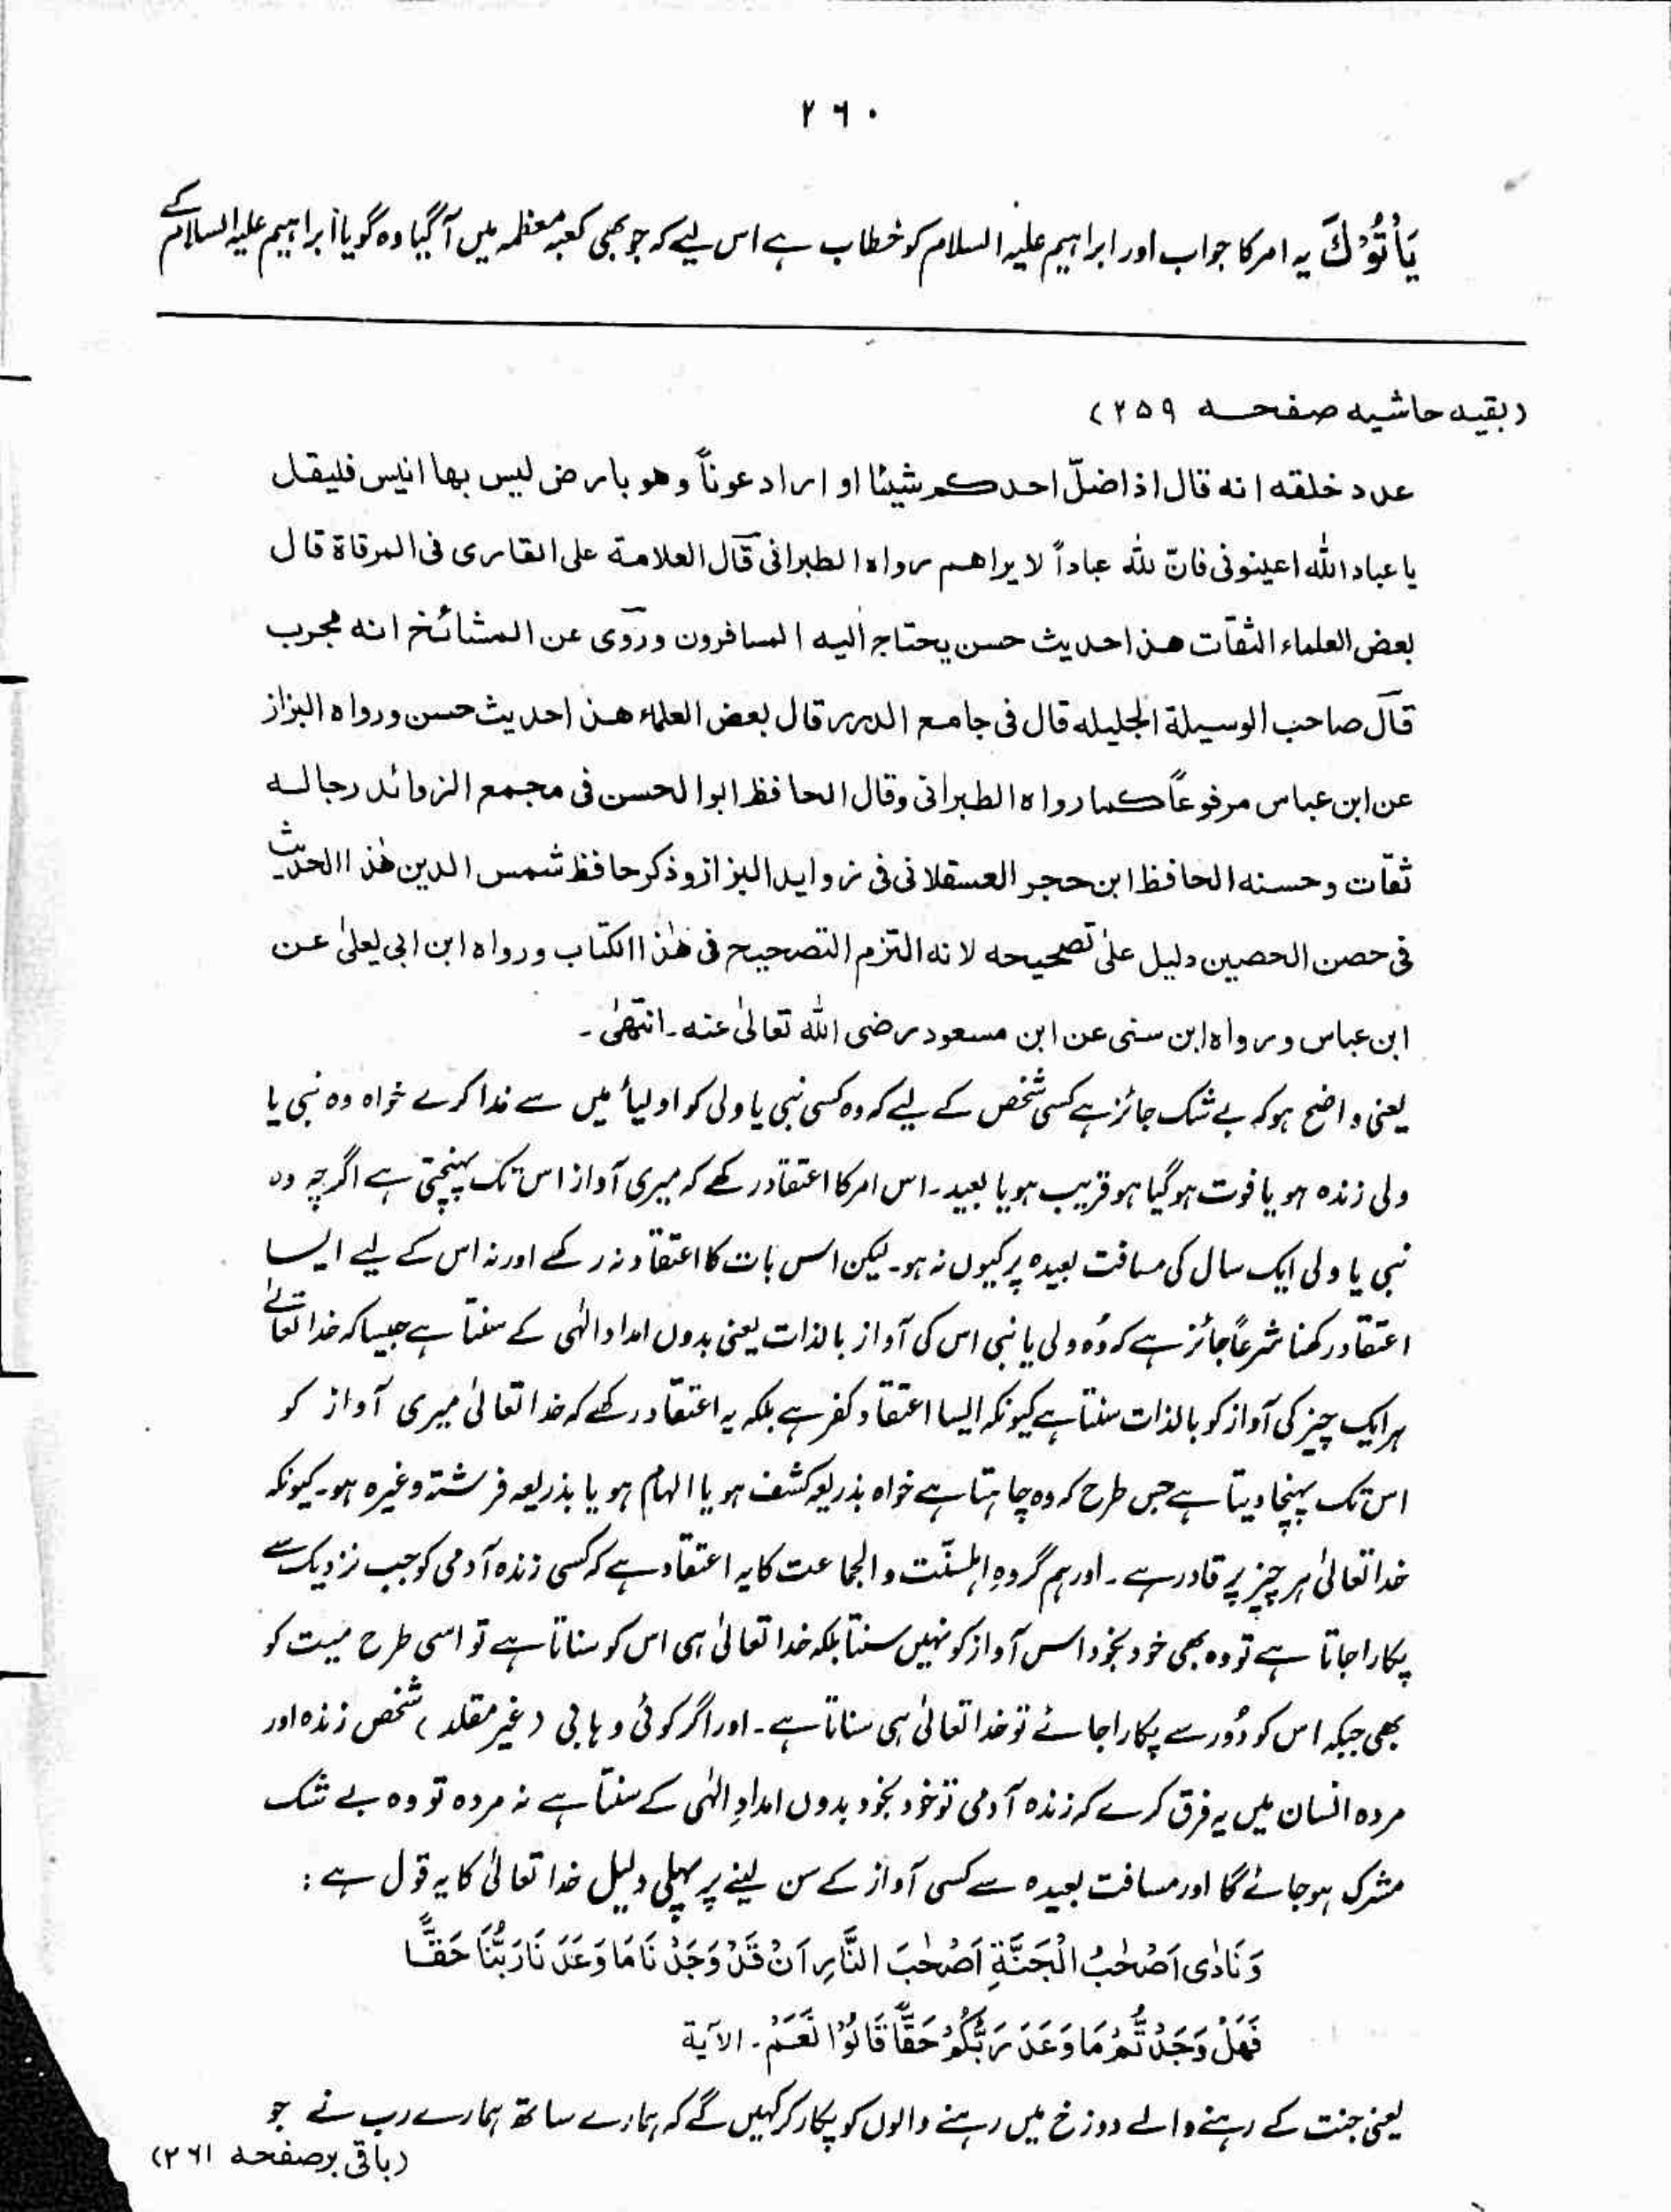 ۲۶۰
يَأْتُوْكَ یہ امر کا جواب اور ابراہیم علیہ السلام کو خطاب ہے اس لیے کہ جو بھی کعبہ معظمہ میں آگیا وہ گویا ابراہیم علیہ السلام کے
(بقیہ حاشیہ صفحہ ۲۵۹)
عدد خلقه انه قال اذا ضلّ احدكم شيئا او اراد عوناً وهو بارض ليس بها انيس فليقل
يا عباد الله اعينوني فانّ لله عباداً لا يراهم رواه الطبرانى قال العلامة على القارى فى المرقاة قال
بعض العلماء الثقات هذا حديث حسن يحتاج اليه المسافرون وروى عن المشائخ انه مجرب
قال صاحب الوسيلة الجليله قال فى جامع الدرر قال بعض العلماء هذا حديث حسن ورواه البزاز
عن ابن عباس مرفوعاً كما رواه الطبرانى وقال الحافظ ابو الحسن فى مجمع الزوائد رجاله
ثقات وحسنه الحافظ ابن حجر العسقلانى فى زوايد البزاز وذكر حافظ شمس الدين هٰذا الحديث
فى حصن الحصين دليل علىٰ تصحيحه لانه التزم التصحيح فى هٰذا الكتاب ورواه ابن ابى يعلىٰ عن
ابن عباس ورواه ابن سنى عن ابن مسعود رضى الله تعالىٰ عنه۔ انتهىٰ۔
یعنی واضح ہو کہ بے شک جائز ہے کسی شخص کے لیے کہ وہ کسی نبی یا ولی کو اولیأ میں سے ندا کرے خواہ وہ نبی یا
ولی زندہ ہو یا فوت ہوگیا ہو قریب ہو یا بعید۔ اس امر کا اعتقاد رکھے کہ میری آواز اس تک پہنچتی ہے اگرچہ وہ
نبی یا ولی ایک سال کی مسافت بعیدہ پر کیوں نہ ہو۔ لیکن اس بات کا اعتقاد نہ رکھے اور نہ اس کے لیے ایسا
اعتقاد رکھنا شرعاً جائز ہے کہ وُہ ولی یا نبی اس کی آواز بالذات یعنی بدوں امداد الٰہی کے سنتا ہے جیسا کہ خدا تعالےٰ
ہر ایک چیز کی آواز کو بالذات سنتا ہے کیونکہ ایسا اعتقاد کفر ہے بلکہ یہ اعتقاد رکھے کہ خدا تعالیٰ میری آواز کو
اس تک پہنچا دیتا ہے جس طرح کہ وہ چاہتا ہے خواہ بذریعہ کشف ہو یا الہام ہو یا بذریعہ فرشتہ وغیرہ ہو۔ کیونکہ
خدا تعالیٰ ہر چیز پر قادر ہے۔ اور ہم گروہِ اہلسنّت والجماعت کا یہ اعتقاد ہے کہ کسی زندہ آدمی کو جب نزدیک سے
پکارا جاتا ہے تو وہ بھی خود بخود اس آواز کو نہیں سنتا بلکہ خدا تعالیٰ ہی اس کو سناتا ہے تو اسی طرح میت کو
بھی جبکہ اس کو دُور سے پکارا جائے تو خدا تعالیٰ ہی سناتا ہے۔ اور اگر کوئی وہابی (غیر مقلد) شخص زندہ اور
مردہ انسان میں یہ فرق کرے کہ زندہ آدمی تو خود بخود بدوں امدادِ الٰہی کے سنتا ہے نہ مردہ تو وہ بے شک
مشرک ہوجائے گا اور مسافت بعیدہ سے کسی آواز کے سن لینے پر پہلی دلیل خدا تعالیٰ کا یہ قول ہے :
وَنَادٰى اَصْحٰبُ الْجَنَّةِ اَصْحٰبَ النَّارِ اَنْ قَدْ وَجَدْنَا مَا وَعَدَنَا رَبُّنَا حَقًّا
فَهَلْ وَجَدْتُّمْ مَا وَعَدَ رَبُّكُمْ حَقًّا قَالُوْا نَعَمْ۔ الآية
یعنی جنت کے رہنے والے دوزخ میں رہنے والوں کو پکار کر کہیں گے کہ ہمارے ساتھ ہمارے رب نے جو
(باقی برصفحہ ۲۶۱)